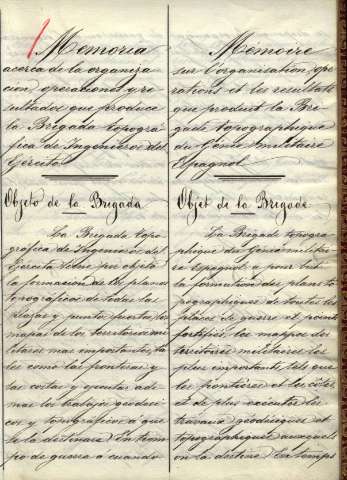 Memoria
acerca de la organiza
cion, operaciones y re
sultados que produce
la Brigada topogra
fica de Ingenieros del
Ejercito
Objeto de la Brigada
La Brigada topo
grafica de Ingenieros del
Ejercito tiene por objeto
la formacion de los planos
topograficos de todas las
plazas y puntos fuertes, los
mapas de los territorios mi
litares mas importantes, ta
les como las fronteras y
las costas y ejecutar ade
mas los trabajos geodesi
cos y topograficos á que
se la destinara. En tiem
po de guerra o cuando
Memoire
sur l'organisation, ope
rations et les resultats
que produit la Bri
gade topographique
du Génie militaire
Espagnol
Objet de la Brigade
La Brigade topogra
phique du Genie militai
re Espagnol a pour but
la formation des plans to
pographiques de toutes les
places de guerre et points
fortifiés, les mappes des
territoires militaires les
plus importants tels que
les frontières et les côtes
et de plus executer les
travaux géodesiques et
topographiques auxquels
on la destine. En temps